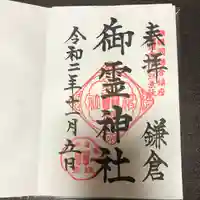 奉拝 鎌倉
御霊神社
令和二年十一月五日